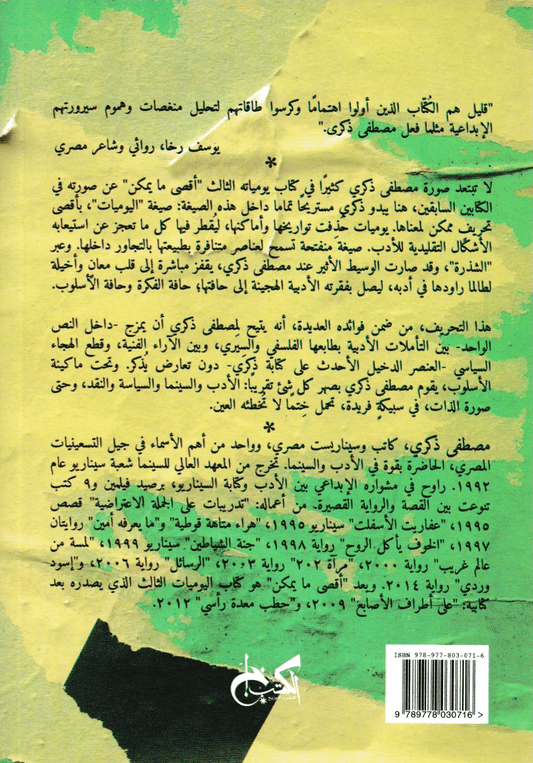 "قليل هم الكُتّاب الذين أولوا اهتمامًا وكرسوا طاقاتهم لتحليل منغصات وهموم سيرورتهم
الإبداعية مثلما فعل مصطفى ذكرى."
يوسف رخا، روائي وشاعر مصري
*
لا تبتعد صورة مصطفى ذكري كثيرًا في كتاب يومياته الثالث "أقصى ما يمكن" عن صورته في
الكتابين السابقين، هنا يبدو ذكري مستريحًا تمامًا داخل هذه الصيغة: صيغة "اليوميات"، بأقصى
تحريف ممكن لمعناها. يوميات حذفت تواريخها وأماكنها، ليُقطر فيها كل ما تعجز عن استيعابه
الأشكال التقليدية للأدب. صيغة منفتحة تسمح لعناصر متنافرة بطبيعتها بالتجاور داخلها. وعبر
"الشذرة"، وقد صارت الوسيط الأثير عند مصطفى ذكري، يقفز مباشرة إلى قلب معانٍ وأخيلة
لطالما راودها في أدبه، ليصل بفقرته الأدبية الهجينة إلى حافتها؛ حافة الفكرة وحافة الأسلوب.
هذا التحريف، من ضمن فوائده العديدة، أنه يتيح لمصطفى ذكري أن يمزج -داخل النص
الواحد- بين التأملات الأدبية بطابعها الفلسفي والسِيري، وبين الآراء الفنية، وقطع الهجاء
السياسي -العنصر الدخيل الأحدث على كتابة ذِكرَي- دون تعارض يُذكر. وتحت ماكينة
الأسلوب، يقوم مصطفى ذكري بصهر كل شئ تقريبًا: الأدب والسينما والسياسة والنقد، وحتى
صورة الذات، في سبيكةٍ فريدة، تحمل خِتمًا لا تُخطئه العين.
*
مصطفى ذكري، كاتب وسيناريست مصري، وواحد من أهم الأسماء في جيل التسعينيات
المصري، الحاضرة بقوة في الأدب والسينما. تخرج من المعهد العالي للسينما شعبة سيناريو عام
١٩٩٢. راوح في مشواره الإبداعي بين الأدب وكتابة السيناريو، برصيد فيلمين و٩ كتب
تنوعت بين القصة والرواية القصيرة. من أعماله: "تدريبات على الجملة الاعتراضية" قصص
١٩٩٥، "عفاريت الأسفلت" سيناريو ١٩٩٥، "هراء متاهة قوطية" و"ما يعرفه أمين" روايتان
١٩٩٧، "الخوف يأكل الروح" رواية ١٩٩٨، "جنة الشياطين" سيناريو ١٩٩٩، "لمسة من
عالم غريب" رواية ٢٠٠٠، "مرآة ٢٠٢" رواية ٢٠٠٣، "الرسائل" رواية ٢٠٠٦، و"إسود
وردي" رواية ٢٠١٤. ويعد "أقصى ما يمكن" هو كتاب اليوميات الثالث الذي يصدره بعد
كتابية: "على أطراف الأصابع" ٢٠٠٩، و"حطب معدة رأسي" ٢٠١٢.
ISBN 978-977-803-071-6
9 789778 030716 >